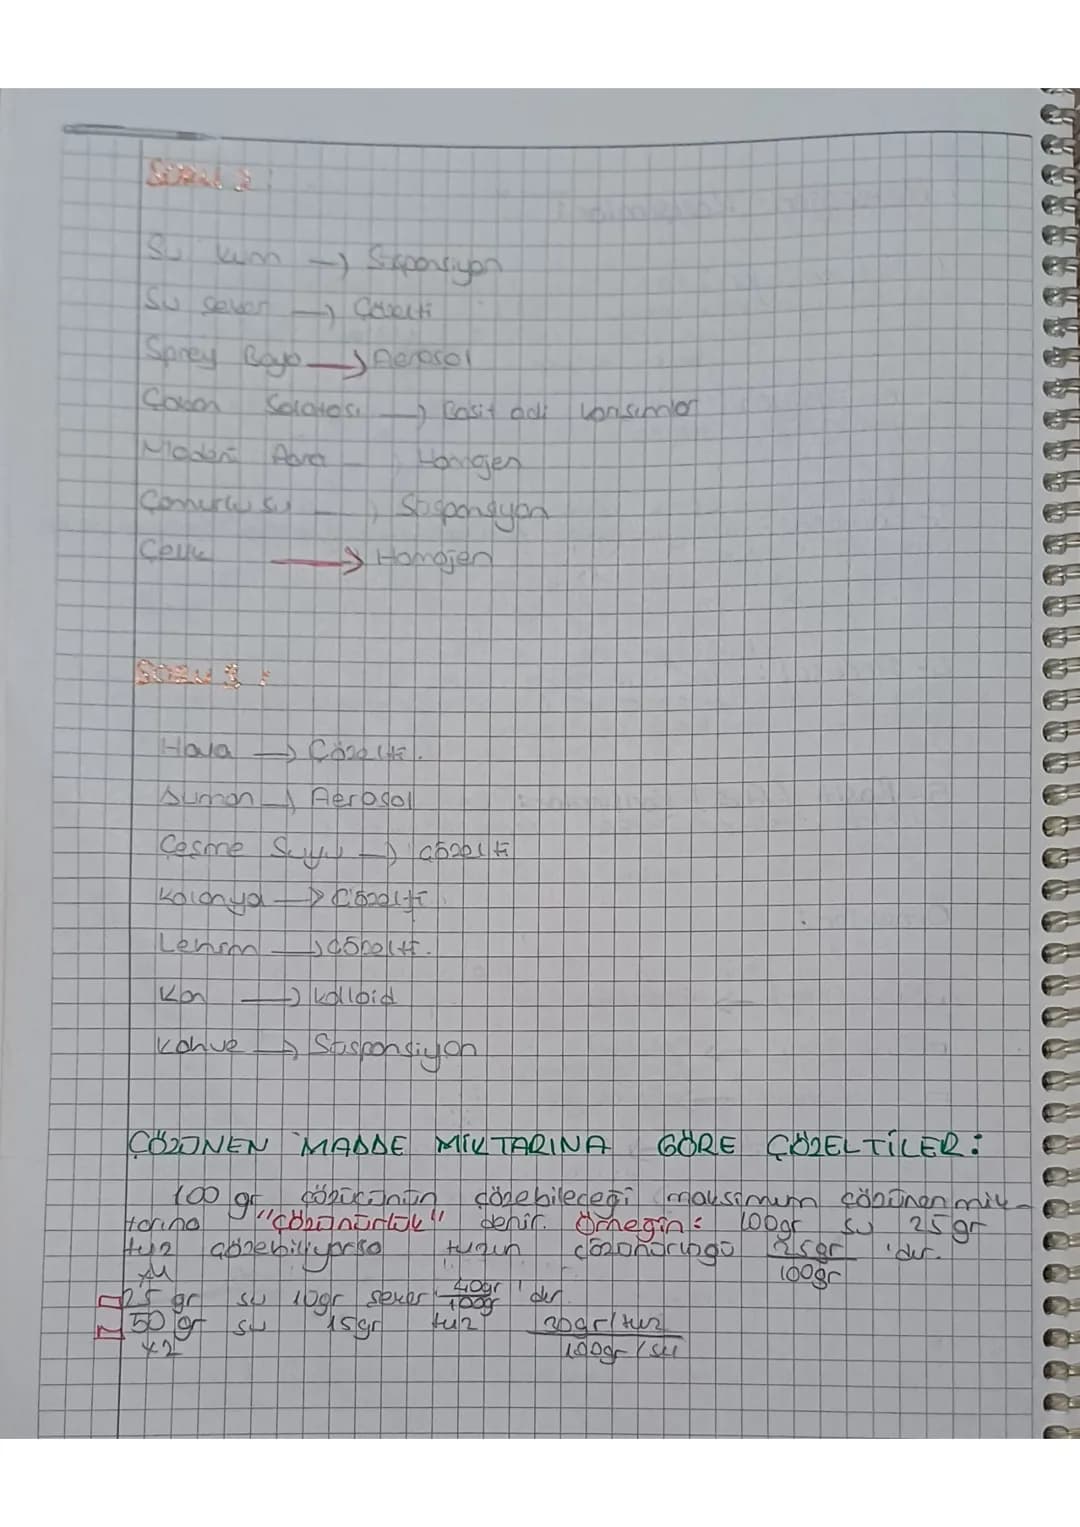 SORU 2:
Su kum → Süspansiyon
Su şeker → Çözelti
Sprey Boya → Aerosol
Çoban Salatası → Basit adi karışımlar
Madeni Para Homojen
Çamurlu su Süspansiyon
Çelik → Homojen
SORU 3 :
Hava → Çözelti.
Duman → Aerosol
Çeşme Suyu → Çözelti
Kolonya → Çözelti
Lehim → Çözelti.
Kan → kolloid
Kahve → Süspansiyon
ÇÖZÜNEN MADDE MİKTARINA GÖRE ÇÖZELTİLER:
100 gr çözücünün çözebileceği maksimum çözünen mik-
tarına "çözünürlük" denir. Örneğin: 100gr su 25gr
tuz çözebiliyorsa tuzun çözünürlüğü 25gr 'dır.
100gr
x4
25 gr su 10gr şeker 40gr 'dır.
100gr
50 gr su 15gr tuz 30gr/tuz
x2 100gr/su